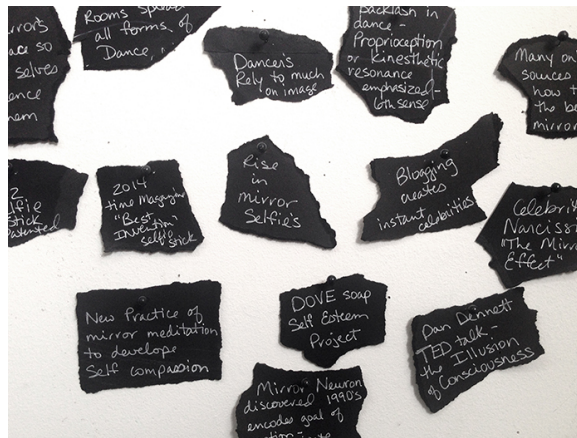 Rooms
all forms of
Dance,
Dancers
Rely to much
on image
Backlash in
dance -
Proprioception
or Kinesthetic
resonance
emphasized-
6th sense
Many on
sources
how t
the be
mirror
2014
time Magazine
"Best
Invention"
selfie stick
Rise
in
mirror
Selfie's
Blogging
creates
instant celebrities
Celebri
Narcissi
"The Mirr
Effect"
New Practice of
mirror meditation
to develope
Self compassion
DOVE soap
Self Esteem
Project
Dan Dennett
TED talk -
the Illusion
of Consciousness
Mirror Neuron
discovered 1990's
encodes goal of